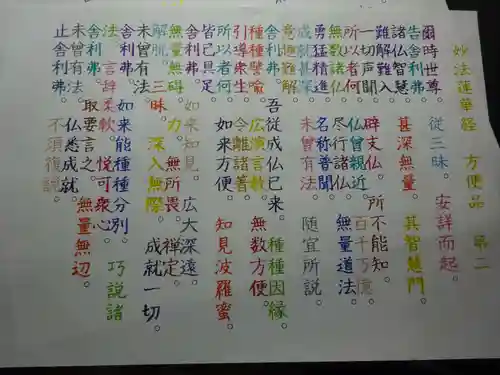 妙法蓮華經 方便品 第二
爾時世尊。從三昧。安詳而起。
告舍利弗。
諸仏智慧。甚深無量。其智慧門。
難解難入。
一切声聞。辟支仏。所不能知。
所以者何。仏曾親近。百千万億
無数諸仏。尽行諸仏。無量道法。
勇猛精進。名称普聞。
成就甚深。未曾有法。随宜所説。
意趣難解。
舍利弗。吾従成仏已来。種種因縁。
種種譬喩。広演言教。無数方便。
引導衆生。令離諸著。
所以者何。如来方便。知見波羅蜜。
皆已具足。
舍利弗。如来知見。広大深遠。
無量無碍。力。無所畏。禅定。
解脱。三昧。深入無際。成就一切
未曾有法。
舍利弗。如来能種種分別。巧説諸
法。言辞柔軟。悦可衆心。
舍利弗。取要言之。無量無辺。
未曾有法。仏悉成就。
止舍利弗。不須復説。